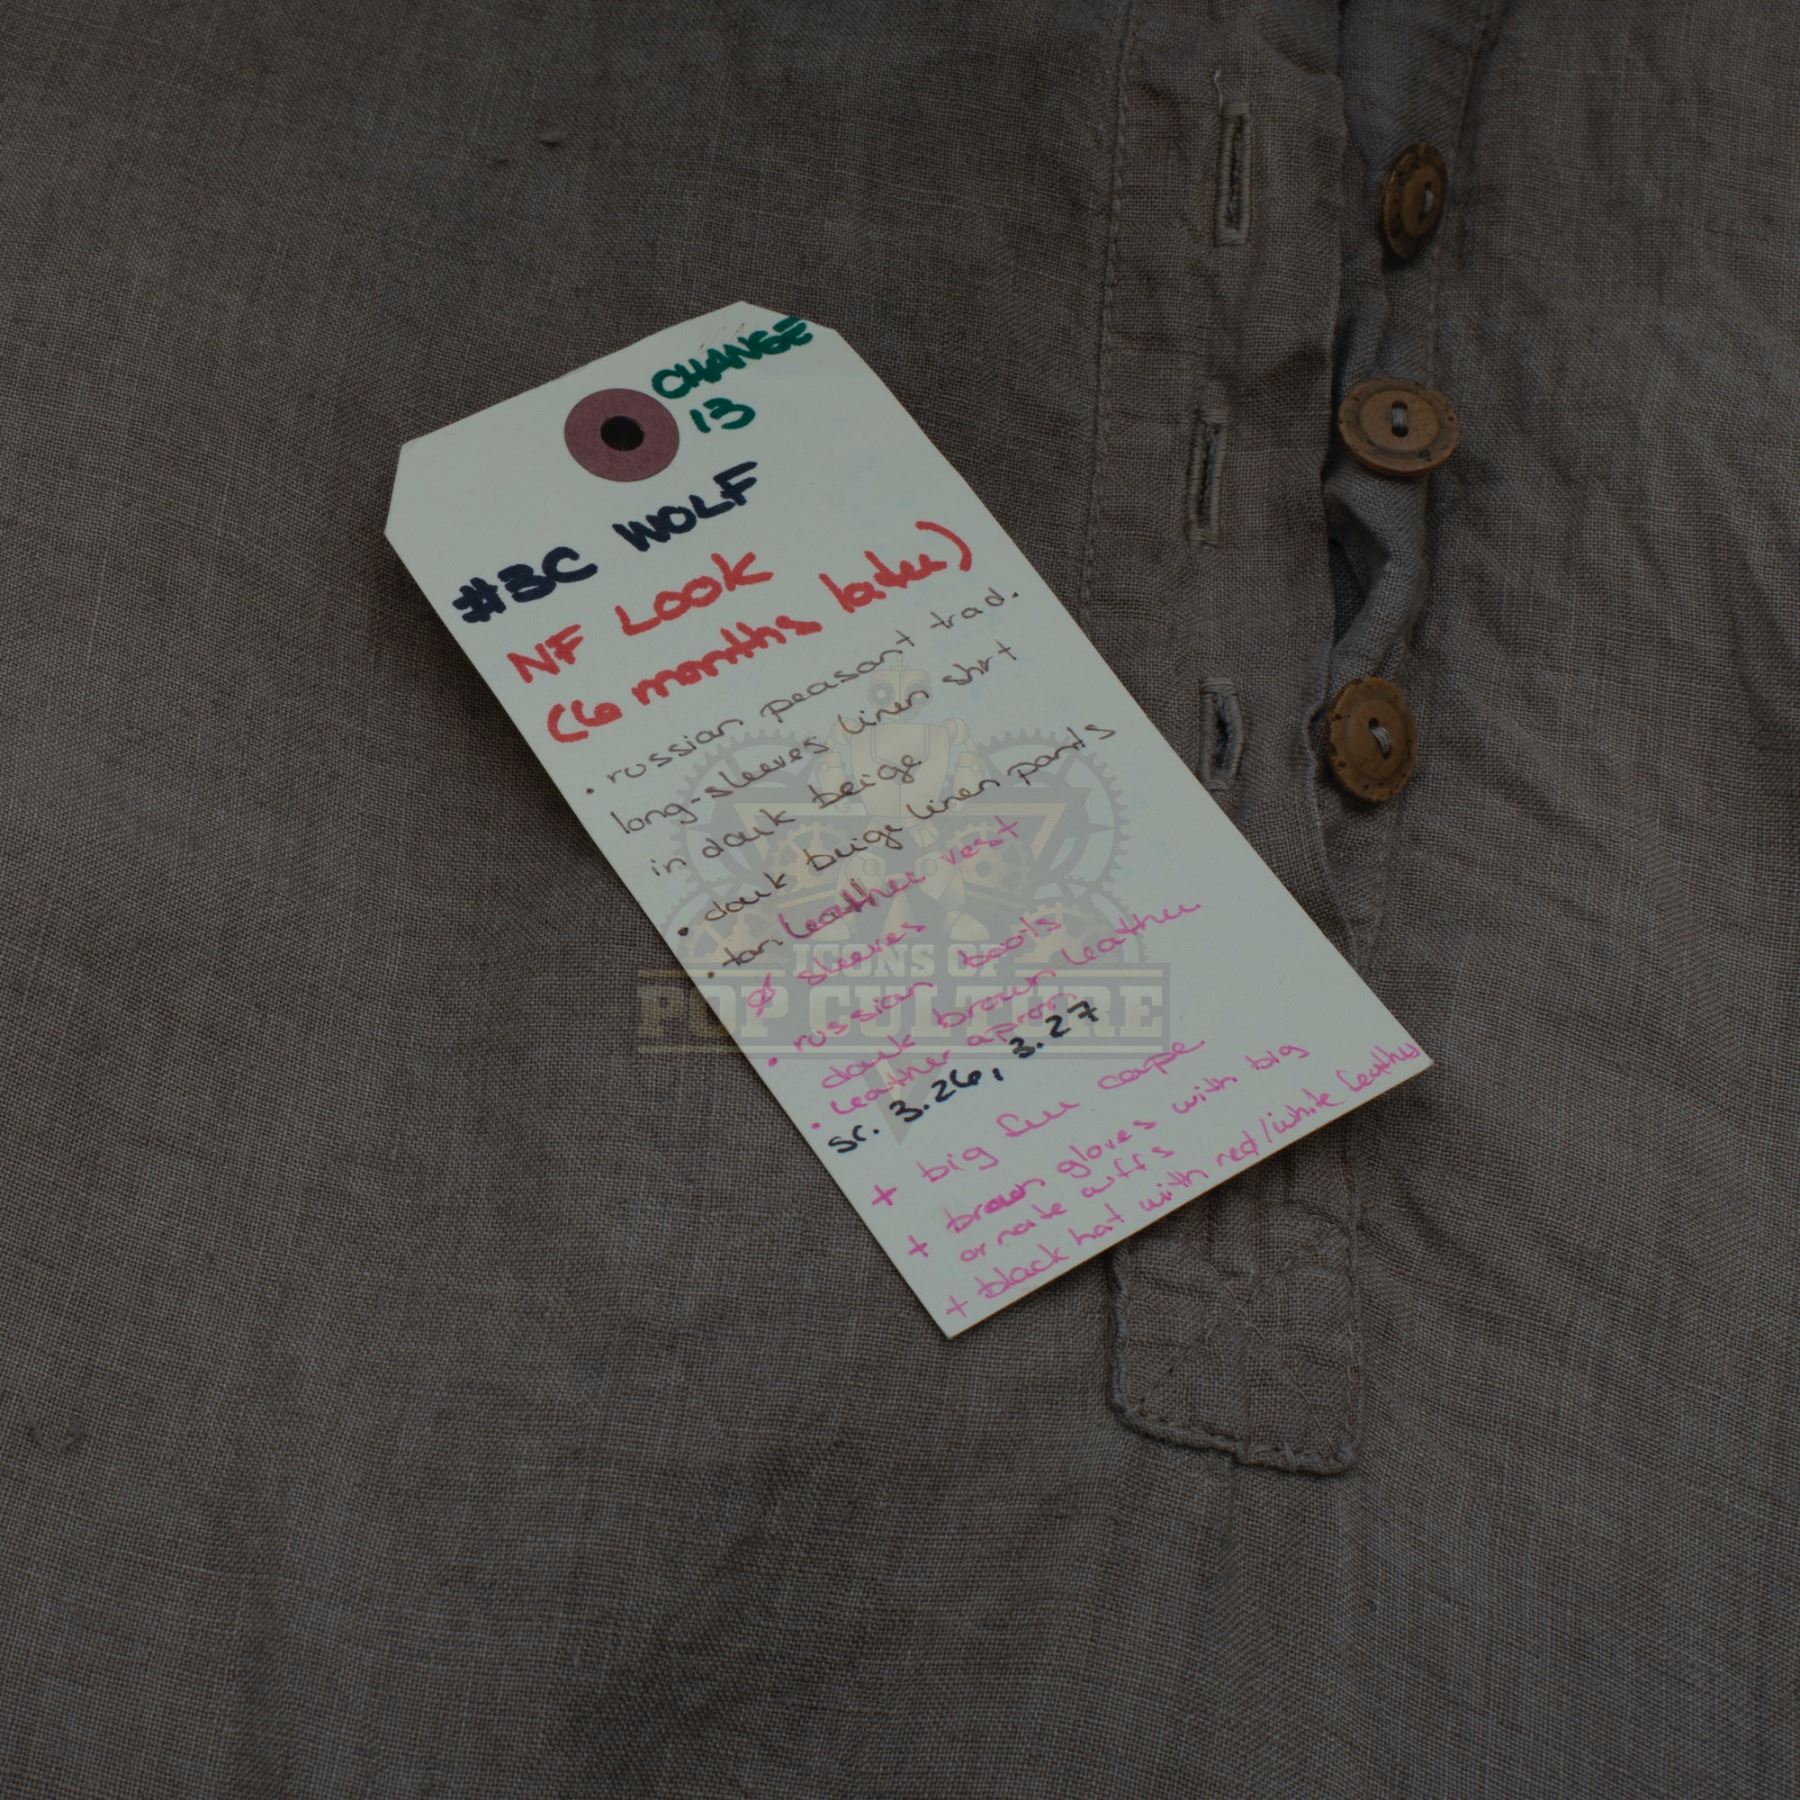 CHANGE
13
#3C WOLF
NF LOOK
(6 months later)
. russian peasant trad.
long-sleeves linen shirt
in dark beige
. dark beige linen pants
. tan leather vest
sleeves
. russian boots
dark brown leather
. leather apron
sc. 3.26, 3.27
+ big fur cape
+ brown gloves with big
ornate cuffs
+ black hat with red/white leather
ICONS OF
POP CULTURE